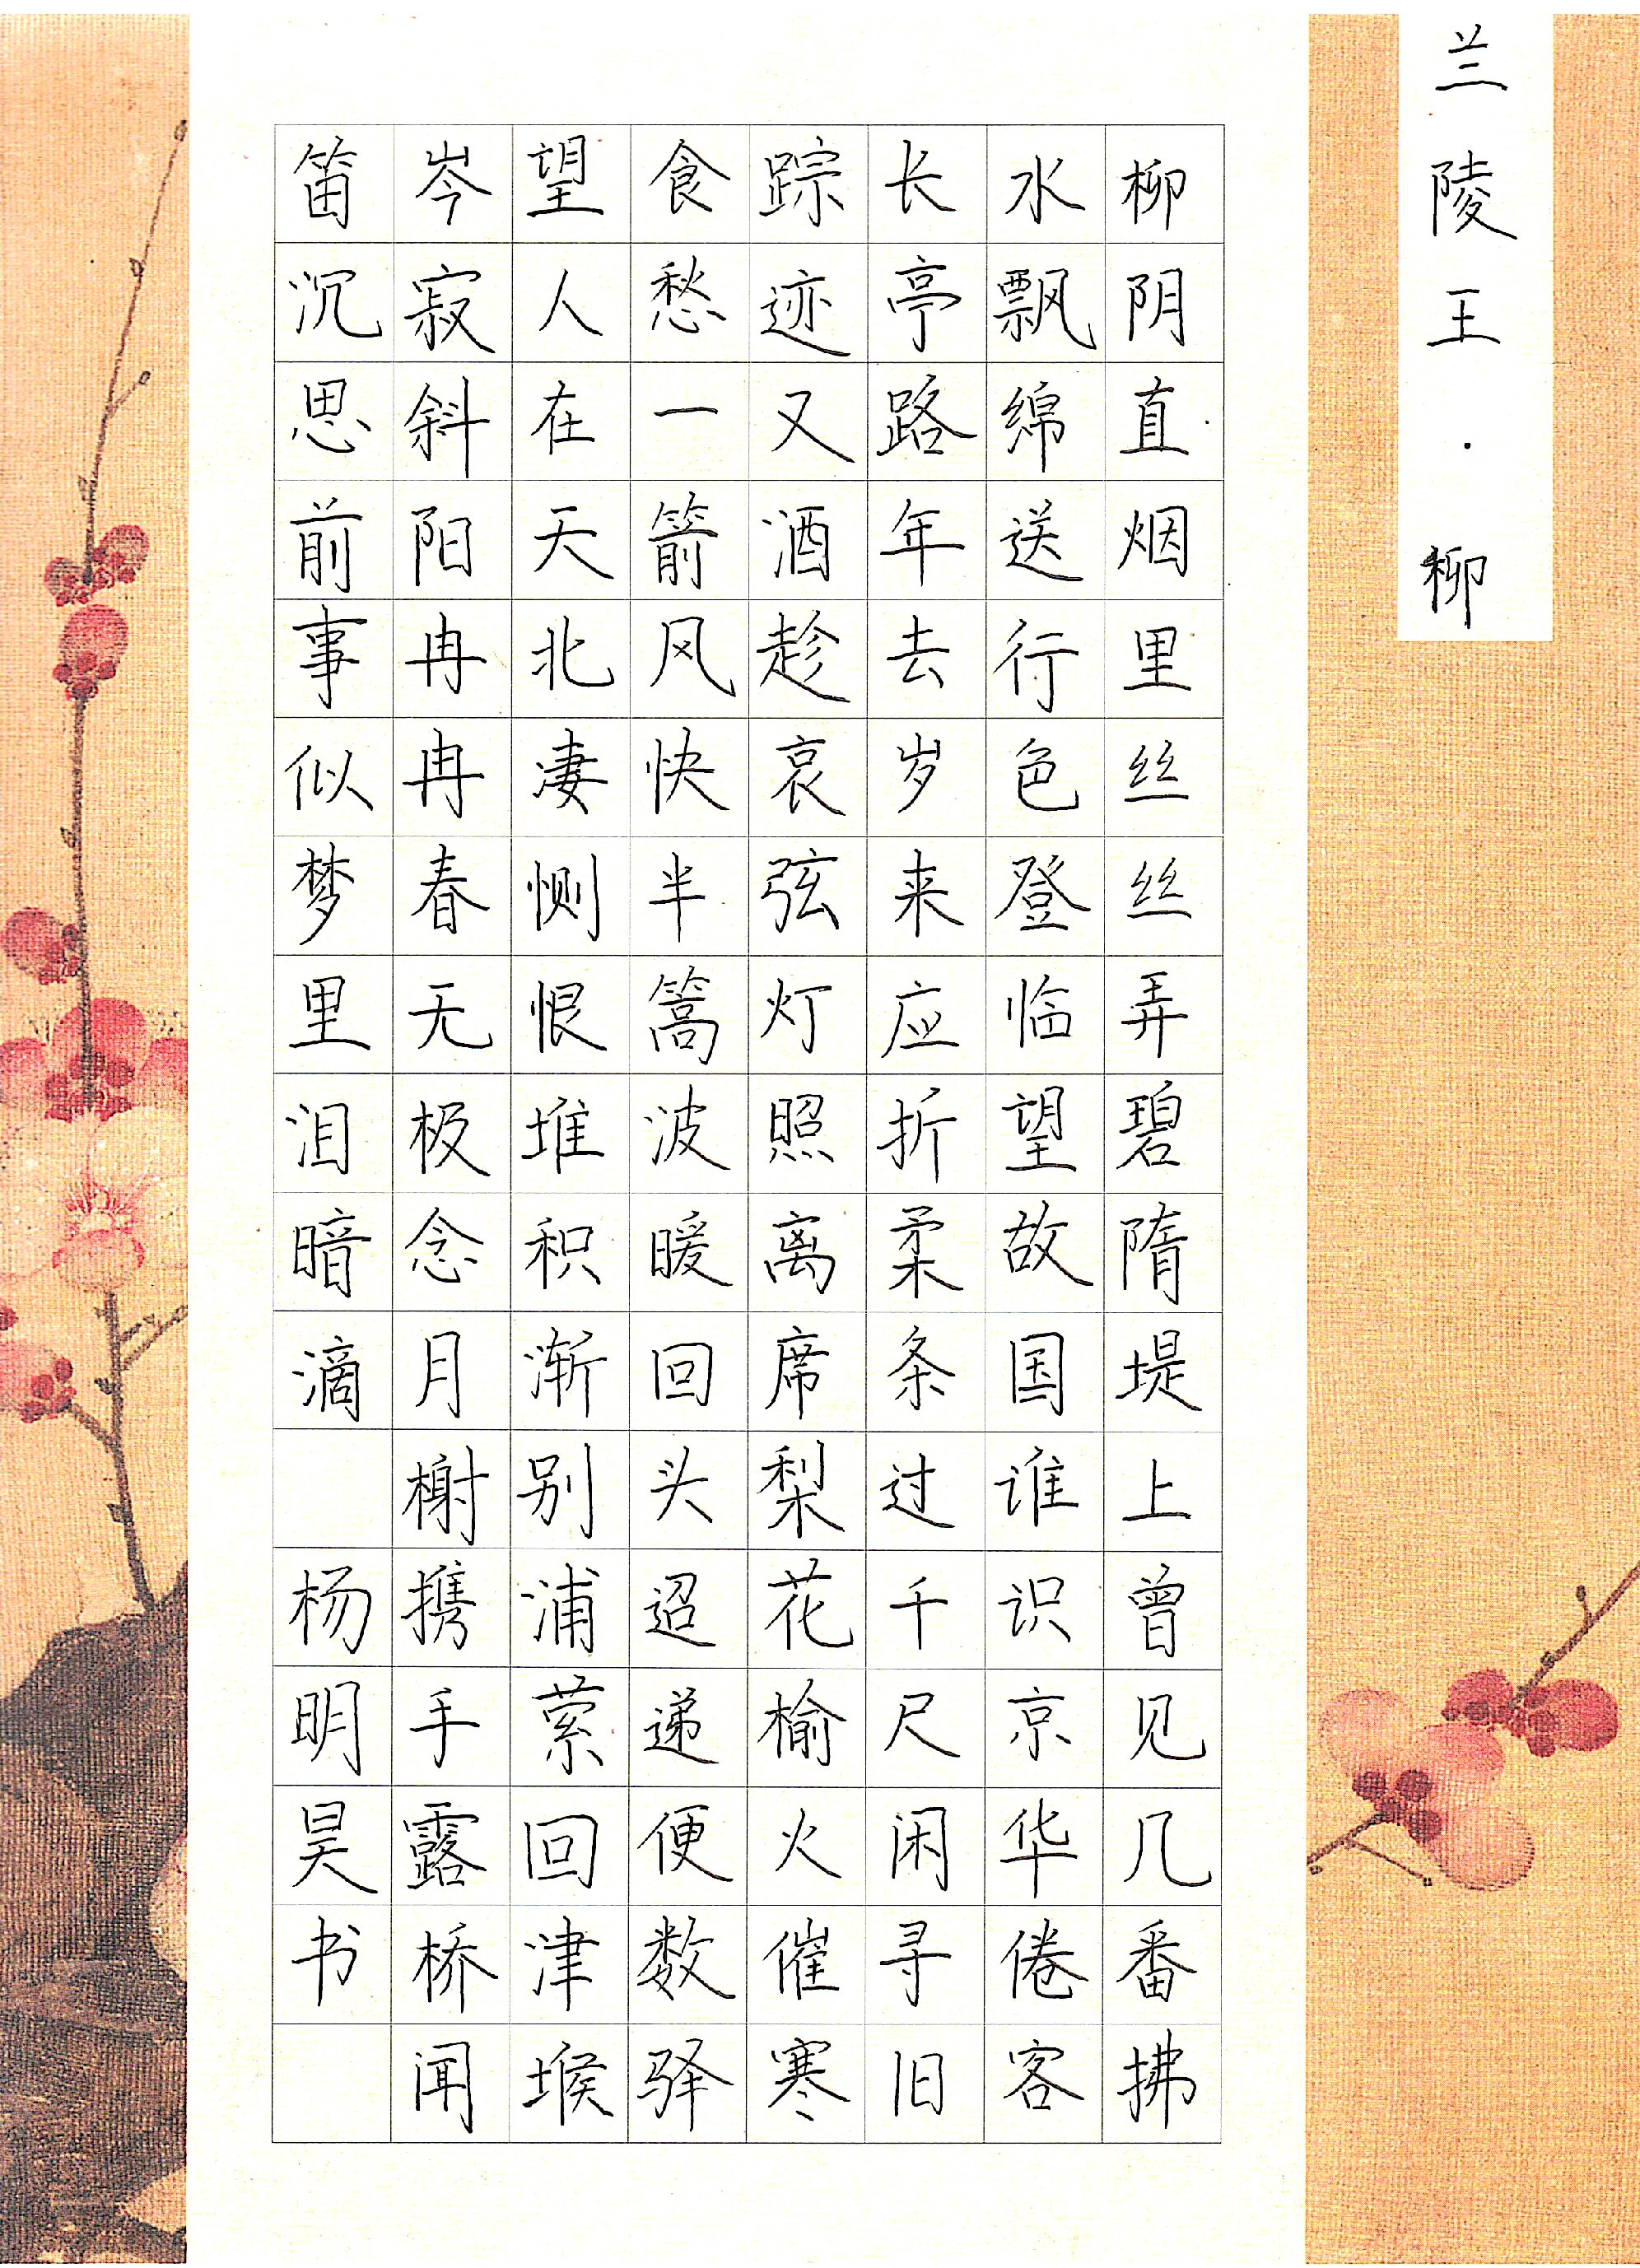 兰陵王·柳
柳阴直烟里丝丝弄碧隋堤上曾见几番拂
水飘绵送行色登临望故国谁识京华倦客
长亭路年去岁来应折柔条过千尺闲寻旧
踪迹又酒趁哀弦灯照离席梨花榆火催寒
食愁一箭风快半篙波暖回头迢递便数驿
望人在天北凄恻恨堆积渐别浦萦回津堠
岑寂斜阳冉冉春无极念月榭携手露桥闻
笛沉思前事似梦里泪暗滴 杨明昊书